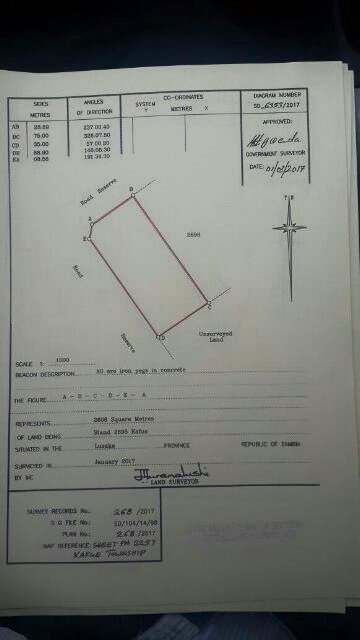 SIDES METRES
ANGLES OF DIRECTION
CO-ORDINATES
SYSTEM
Y METRES X
DIAGRAM NUMBER
SD 6353/2017
AB 28.89 237.00.40
BC 75.00 328.07.50
CD 35.00 57.00.20
DE 68.90
EA 08.56
APPROVED:
GOVERNMENT SURVEYOR
DATE:
T N
Road Reserve
B
A
E
2698
Road
Reserve
C
D
Unsurveyed Land
SCALE 1: 1000
BEACON DESCRIPTION All are iron pegs in concrete
THE FIGURE A - B - C - D - E - A
REPRESENTS 2606 Square Metres
OF LAND BEING Stand 2695 Kafue
SITUATED IN THE Lusaka PROVINCE REPUBLIC OF ZAMBIA
SURVEYED IN January 2017
BY ME
LAND SURVEYOR
SURVEY RECORDS No: 268/2017
S G FILE No: SD/104/14/98
PLAN No: 268/2017
MAP REFERENCE: SHEET PM 2257
KAFUE TOWNSHIP